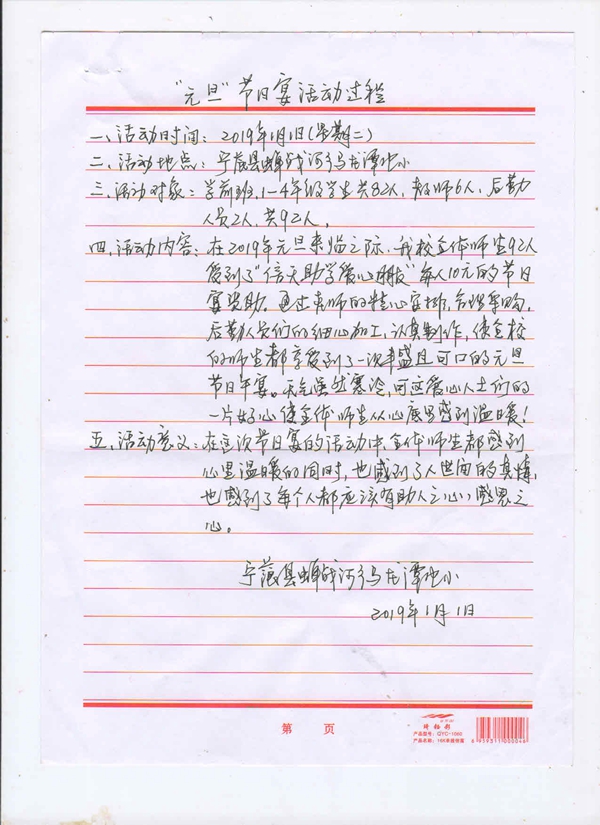 “元旦”节日宴活动过程
一、活动时间：2019年1月1日(星期二)
二、活动地点：宁蒗县蝉战河乡乌龙潭完小
三、活动对象：学前班，1-4年级学生共82人，教师6人，后勤
人员2人，共92人。
四、活动内容：在2019年元旦来临之际，我校全体师生92人
受到了“信天助学爱心捐款”每人10元的节日
宴资助。通过老师的精心安排，合理采购，
后勤人员们的细心加工，认真制作，使全校
的师生都享受到了一次丰盛且可口的元旦
节日午宴。天气虽然寒冷，可这爱心人士们的
一片好心使全体师生从心底里感到温暖！
五、活动意义：在这次节日宴的活动中，全体师生都感到
心里温暖的同时，也感到了人世间的真情，
也感到了每个人都应该有助人之心，感恩之
心。
宁蒗县蝉战河乡乌龙潭完小
2019年1月1日
第 页
产品型号：QYC-1066
产品名称：16K单线信笺
6959311000046